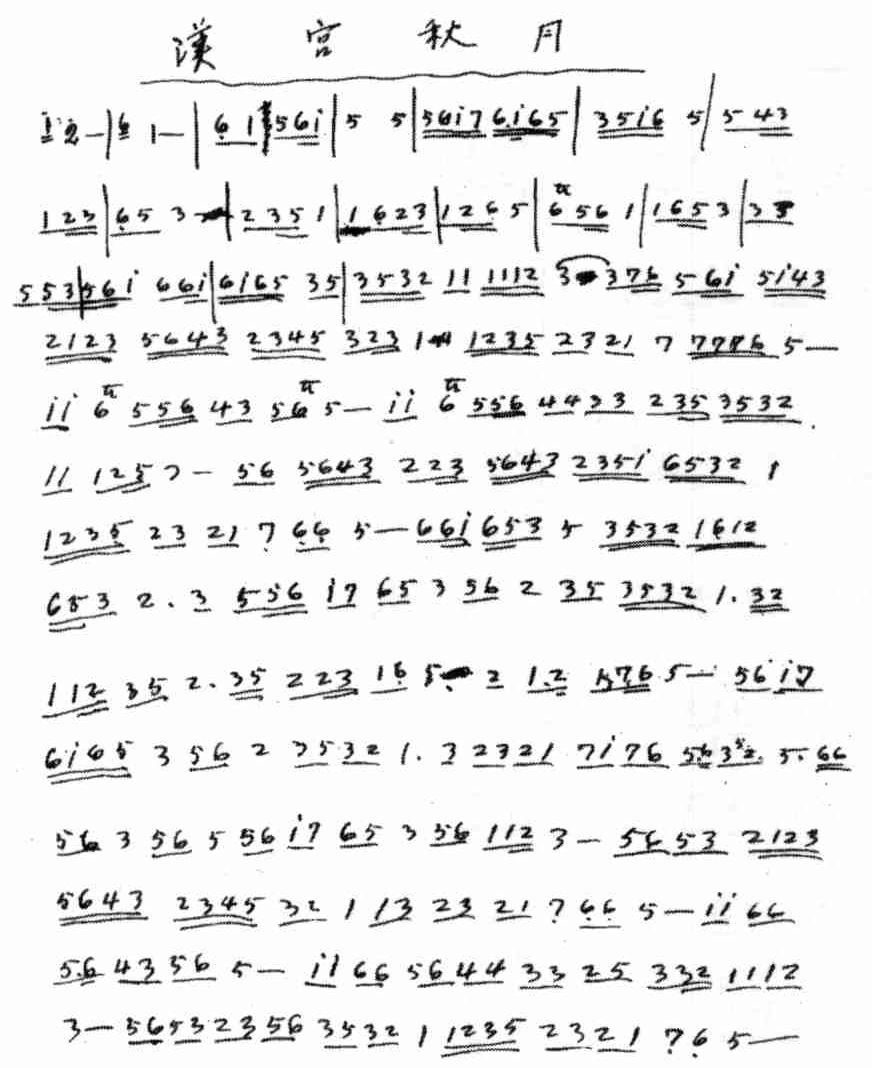 漢宮秋月
1̇ 2̇ — | 6 1 — | 6 1 | 5 6 i | 5 5 | 5 6 i 7 6. i 6 5 | 3 5 i 6 5 | 5 4 3
1 2 3 | 6 5 3 — | 2 3 5 1 | 1 6 2 3 | 1 2 6 5 | 6 5 6 1 | 1 6 5 3 | 3
5 5 3 | 5 6 i 6 6 i | 6 i 6 5 3 5 | 3 5 3 2 1 1 1 1 1 2 3 3 7 6 5 6 i 5 i 4 3
2 1 2 3 5 6 4 3 2 3 4 5 3 2 3 1 1 2 3 5 2 3 2 1 7 7 7 6 5 —
i i 6 5 5 6 4 3 5 6 5 — i i 6 5 5 6 4 4 3 3 2 3 5 3 5 3 2
1 1 1 2 5 3 — 5 6 5 6 4 3 2 2 3 5 6 4 3 2 3 5 i 6 5 3 2 1
1 2 3 5 2 3 2 1 7 6 6 5 — 6 6 i 6 5 3 5 3 5 3 2 1 6 1 2
6 5 3 2 . 3 5 5 6 i 7 6 5 3 5 6 2 3 5 3 5 3 2 1 . 3 2
1 1 2 3 5 2 . 3 5 2 2 3 1 6 5 2 1 . 2 7 6 5 — 5 6 i 7
6 i 6 5 3 5 6 2 3 5 3 2 1 . 3 2 3 2 1 7 i 7 6 5 6 3 5 2 5 . 6 6
5 6 3 5 6 5 5 6 i 7 6 5 3 5 6 1 1 2 3 — 5 6 5 3 2 1 2 3
5 6 4 3 2 3 4 5 3 2 1 1 3 2 3 2 1 7 6 6 5 — i i 6 6
5 . 6 4 3 5 6 5 — i i 6 6 5 6 4 4 3 3 2 5 3 3 2 1 1 1 2
3 — 5 6 5 3 2 3 5 6 3 5 3 2 1 1 2 3 5 2 3 2 1 7 6 5 —